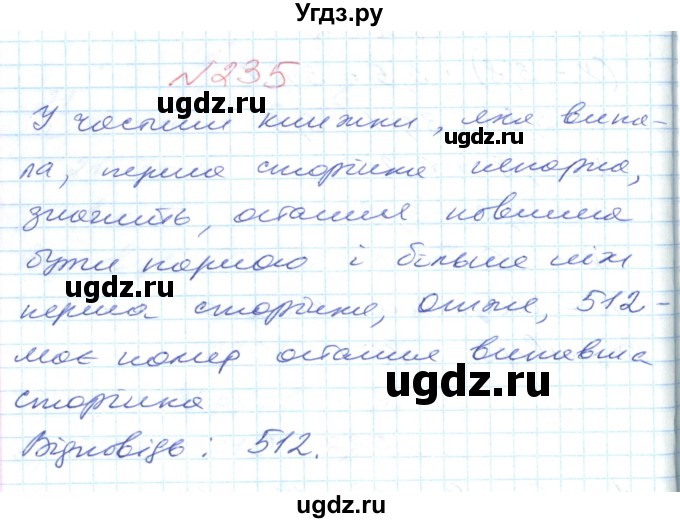 Угдз.ру
№235
У частини книжки, яка випа-
ла, перша сторінка непарна,
значить, остання повинна
бути парною і більше ніж
перша сторінка, отже, 512 -
має номер остання випавша
сторінка
Відповідь: 512.
ugdz.ru
ugdz.ru
ugdz.ru
ugdz.ru
ugdz.ru
ugdz.ru